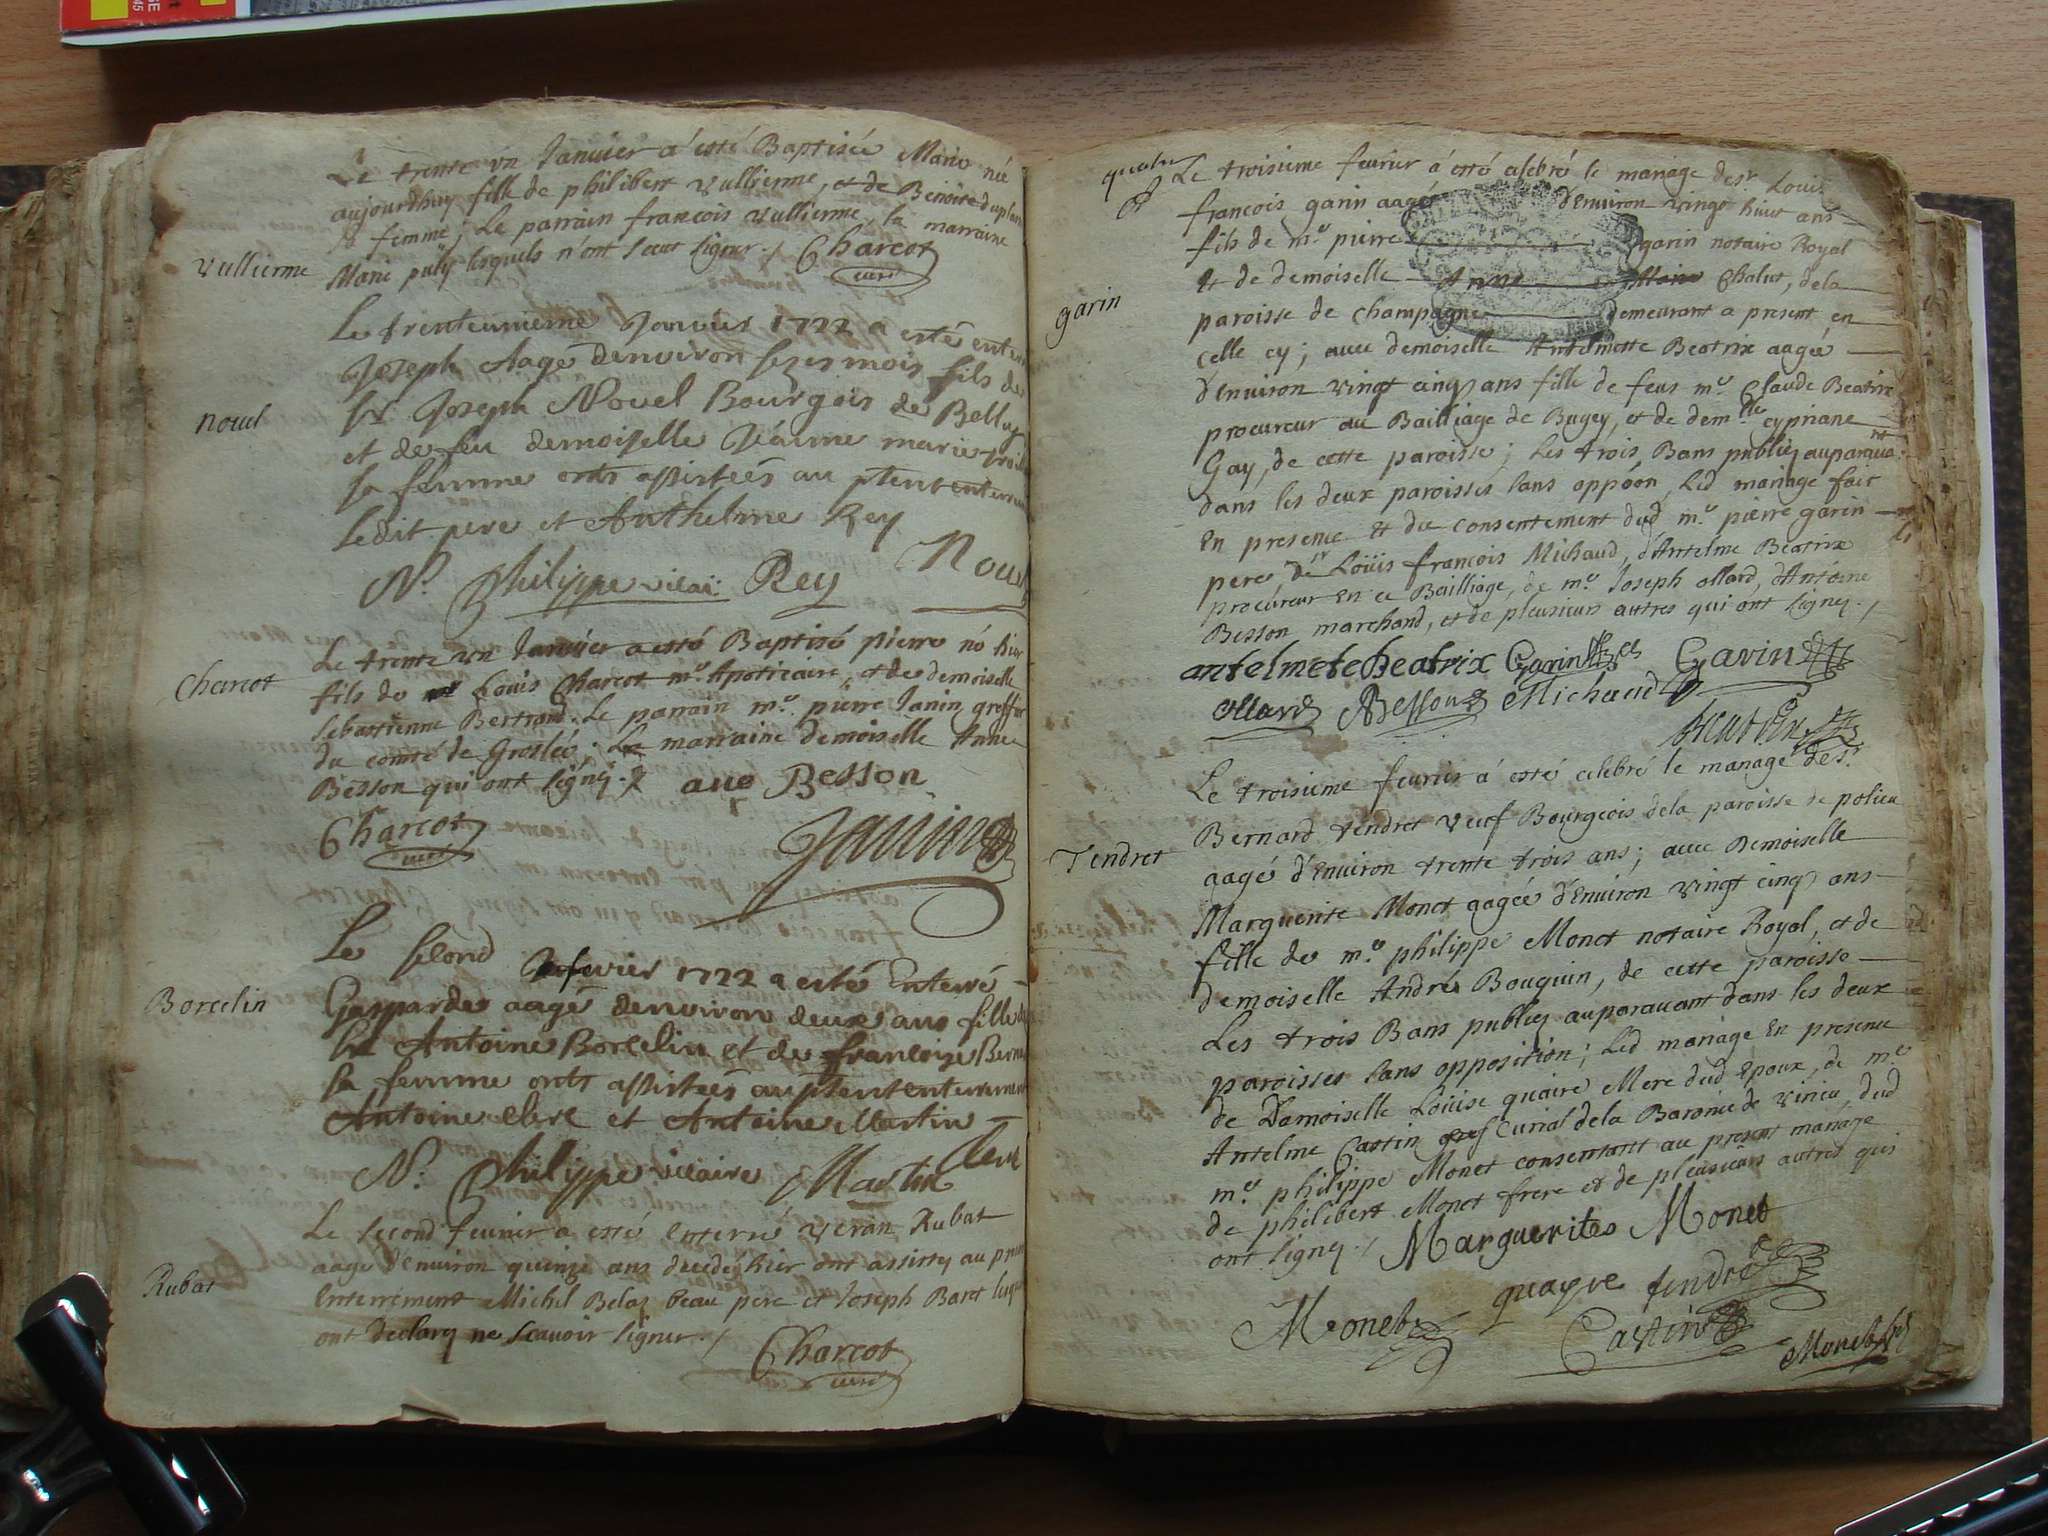 Le trente un Janvier a esté Baptisée Marie née
aujourdhuy fille de philibert vullierme, et de Benoite duplan
sa femme; Le parrain francois vullierme, la marraine
Vullierme
Marie puty lesquels n'ont sceut signer./. Charcot
curé
Le trenteunieme Janvier 1722 a esté enterré
Joseph Aagé denviron sezes mois fils de
Nouel
Sr. Joseph Novel Bourgois de Belley
et de feu demoiselle Jeanne marie
sa femme onts assistées au ptent enterrem
Ledit pere et Anthelme Rey
N. Philippe vicai: Rey Nouel
Le trente un Janvier a esté Baptisé pierre né hier
Charcot
fils de Louis Charcot me. Apoticaire, et de demoiselle
sebastienne Bertrand. Le parrain me. pierre Janin greffier
du comté de Groslée; La marraine demoiselle Anne
Besson qui ont signé. ane Besson
Charcot
curé
Janin
Le second fevrier 1722 a esté Enterré
Borcelin
Gasparde aagé denviron deux ans fille de
Sr Antoine Borcelin et de francoize
sa femme onts assistées au ptent enterrement
Antoine clere et Antoine Martin
N. Philippe vicaire Martin clere
Le second feurier a esté enterré veran Rubat
aagé d'enuiron quinze ans decedé hier ont assisté au
Rubat
enterrement Michel Belaz beau pere et Joseph Baret
ont declaré ne scauoir signer./. Charcot
curé
quatre
Le troisieme feurier á esté celebré le mariage de sr. Louis
francois garin aagé d'Enuiron vingt huit ans
fils de me. pierre garin notaire Royal
garin
et de demoiselle Anne Chalut, dela
paroisse de champagne demeurant a present en
celle cy; auec demoiselle Antelmette Beatrix aagée
d'Enuiron vingt cinq ans fille de feus me. Claude Beatrix
procureur au Bailliage de Bugey, et de demlle cypriane
Gay, de cette paroisse; Les trois Bans publiez auparauant
dans les deux paroisses sans oppóon, Led mariage fait
En presence et du consentement dud me. pierre garin
pere, de sr Loüis francois Michaud, d'Antelme Beatrix
procureur En ce Bailliage, de me. Joseph ollard, d'Antoine
Besson marchand, et de plusieurs autres qui ont signez./.
antelmete beatrix Garin Garin
ollard ABesson Michaud
beatrix
Le troisieme feurier á esté celebré le mariage de sr.
Bernard tendret veuf Bourgeois dela paroisse de polieu
Tendret
aagé d'Enuiron trente trois ans; auec Demoiselle
Marguerite Monet aagée d'Enuiron vingt cinq ans
fille de me. philippe Monet notaire Royal, et de
demoiselle André Bouquin, de cette paroisse
Les trois Bans publiez auparauant dans les deux
paroisses sans opposition; Led mariage En presence
de Damoiselle Loüise quaire Mere dud Epoux, de me.
Antelme Castin Curial dela Baronie de virieu, dud
me. philippe Monet consentant au present mariage
de philibert Monet frere et de plusieurs autres qui
ont signez./. Marguerites Monet
quayre tendret
Monet Castin Monet fils